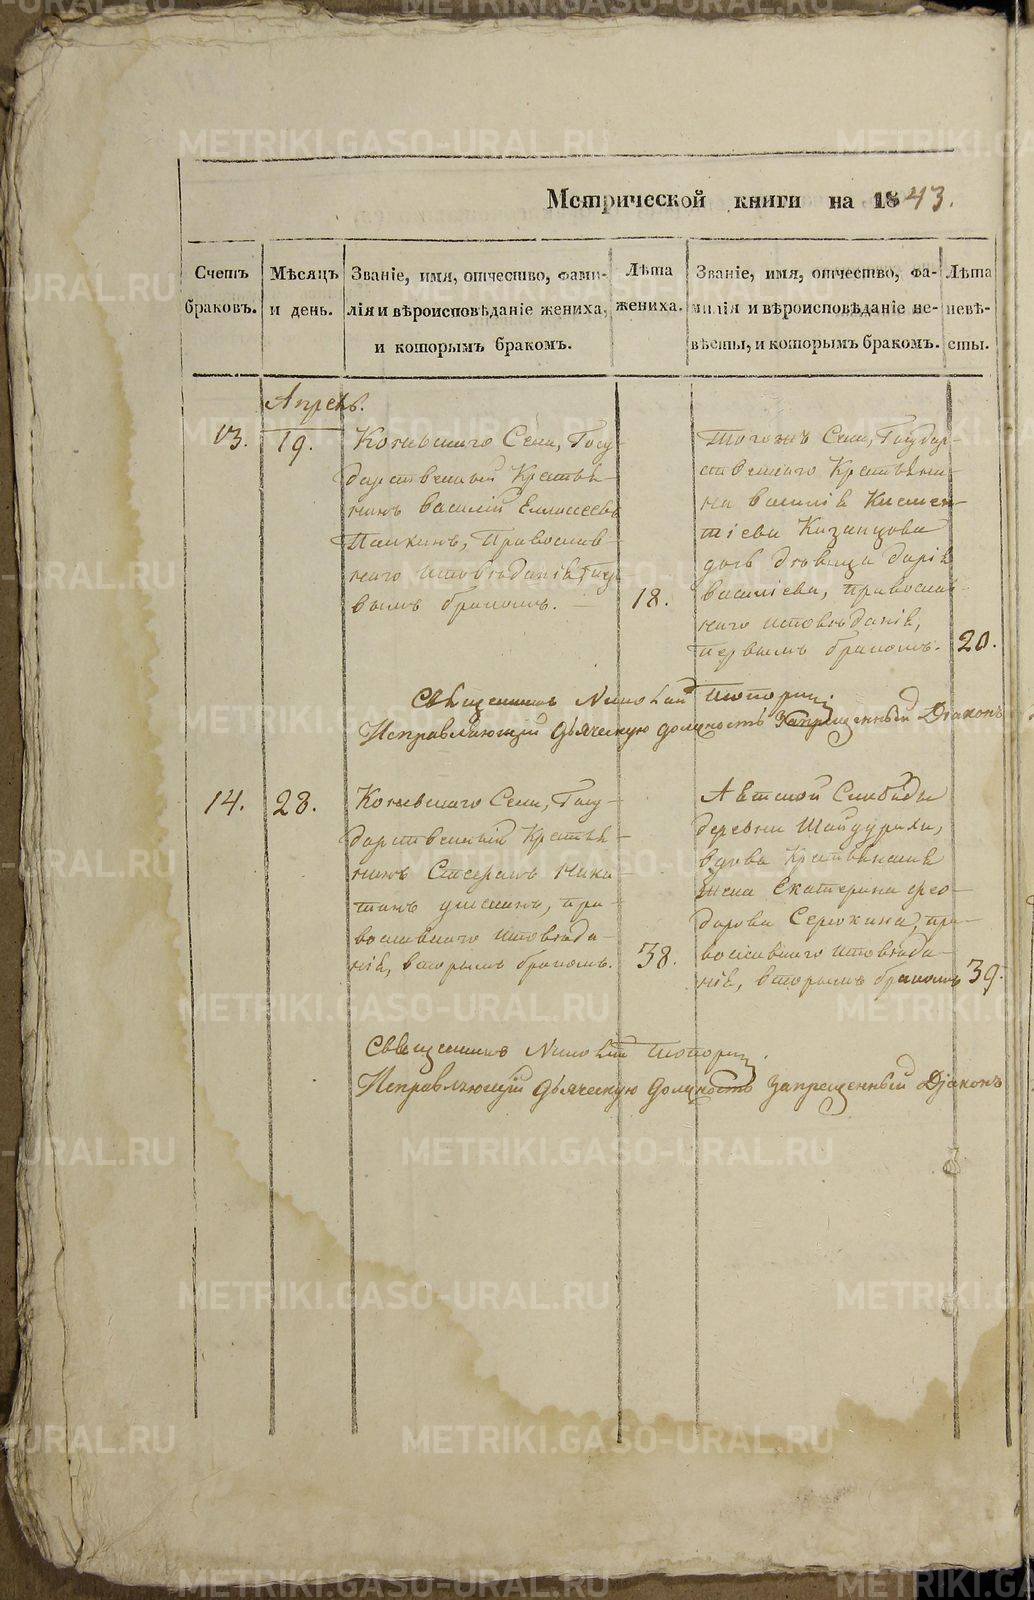 Метрической книги на 1843.
Счетъ браковъ.
Мѣсяцъ и день.
Званіе, имя, отчество, фами-
лія и вѣроисповѣданіе жениха,
и которымъ бракомъ.
Лѣта
жениха.
Званіе, имя, отчество, фа-
милія и вѣроисповѣданіе не-
вѣсты, и которымъ бракомъ.
Лѣта
невѣ-
сты.
Апрель.
13.
19.
Коневскаго Села, Госу-
дарственный Крестья-
нинъ Василій
Православ-
наго исповѣданія, пер
вымъ бракомъ.
18.
Тогожъ Села, Государ-
ственнаго Крестьяни-
на Василія Климен-
тіева Казанцова
дочь дѣвица Дарія
Василіева, православ-
наго исповѣданія,
первымъ бракомъ.
20.
Священникъ Николай Топорк
Исправляющій дьяческую должность Запрещенный Діаконъ
14.
28.
Коневскаго Села, Госу-
дарственный Крестья-
нинъ Стефанъ Ники
тинъ пра-
вославнаго исповѣда-
нія, вторымъ бракомъ.
38.
Аятской Слободы
деревни Шайдурихи,
вдова Крестьянская
жена Екатерина Фео-
дорова Сорокина, пра-
вославнаго исповѣда-
нія, вторымъ бракомъ
39.
Священникъ Николай Топорк
Исправляющій дьяческую должность запрещенный Діаконъ
METRIKI.GASO-URAL.RU